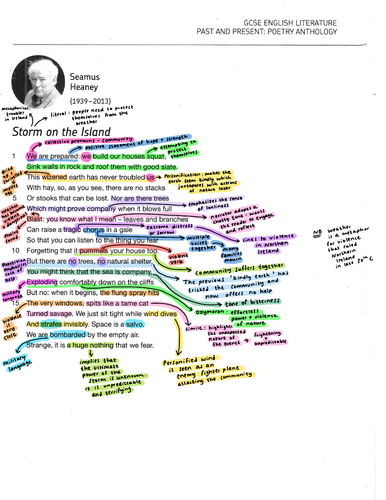 GCSE ENGLISH LITERATURE
PAST AND PRESENT: POETRY ANTHOLOGY
Seamus
Heaney
(1939–2013)
metaphorical: troubles in Ireland
literal: people need to protect themselves from the weather
Storm on the Island
collective pronouns - community
positive statement of hope + strength
attempting to protect themselves
1 We are prepared: we build our houses squat,
Sink walls in rock and roof them with good slate.
This wizened earth has never troubled us
Personification: makes the earth seem kindly which juxtaposes with actions of nature later
With hay, so, as you see, there are no stacks
5 Or stooks that can be lost. Nor are there trees
emphasises the sense of loneliness
Which might prove company when it blows full
Blast: you know what I mean – leaves and branches
narrator adopts a chatty tone: wants the reader to engage and reflect
Can raise a tragic chorus in a gale
extreme distress or sorrow
multiple voices together
many families
links to violence in Northern Ireland
So that you can listen to the thing you fear
10 Forgetting that it pummels your house too.
violent verb
But there are no trees, no natural shelter.
community suffers together
You might think that the sea is company,
The previous 'kindly earth' has tricked the community and now offers no help
Exploding comfortably down on the cliffs
tone of bitterness
But no: when it begins, the flung spray hits
oxymoron: effortless power + violence of nature
15 The very windows, spits like a tame cat
Turned savage. We just sit tight while wind dives
simile: highlights the unexpected nature of the events → frightening + unpredictable
And strafes invisibly. Space is a salvo.
We are bombarded by the empty air.
Strange, it is a huge nothing that we fear.
NB weather is a metaphor for violence that ruled Northern Ireland in late 20th C
military language
implies that the ultimate power of the storm is unknown. it is unpredictable and terrifying.
Personified wind is seen as an enemy fighter plane attacking the community